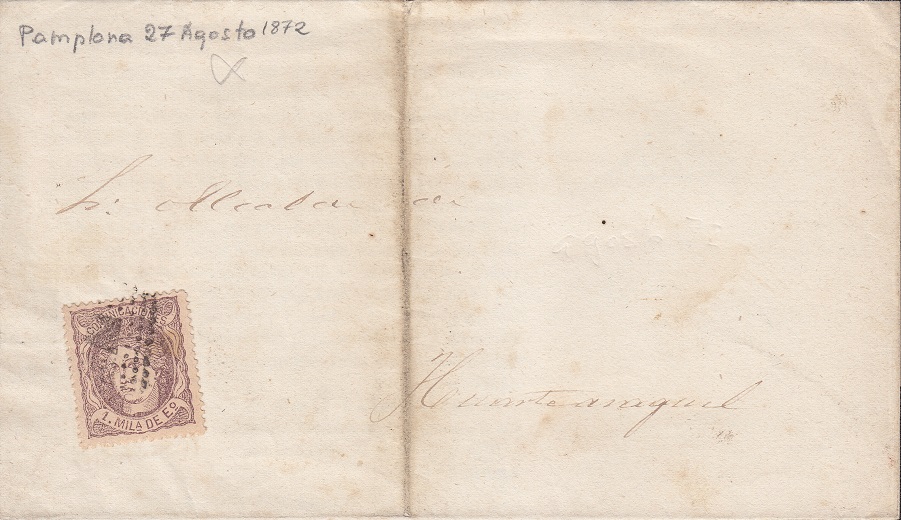 Pamplona 27 Agosto 1872
Sr. Alcalde de
COMUNICACIONES
1. MILA DE Eo
Huarte araquil